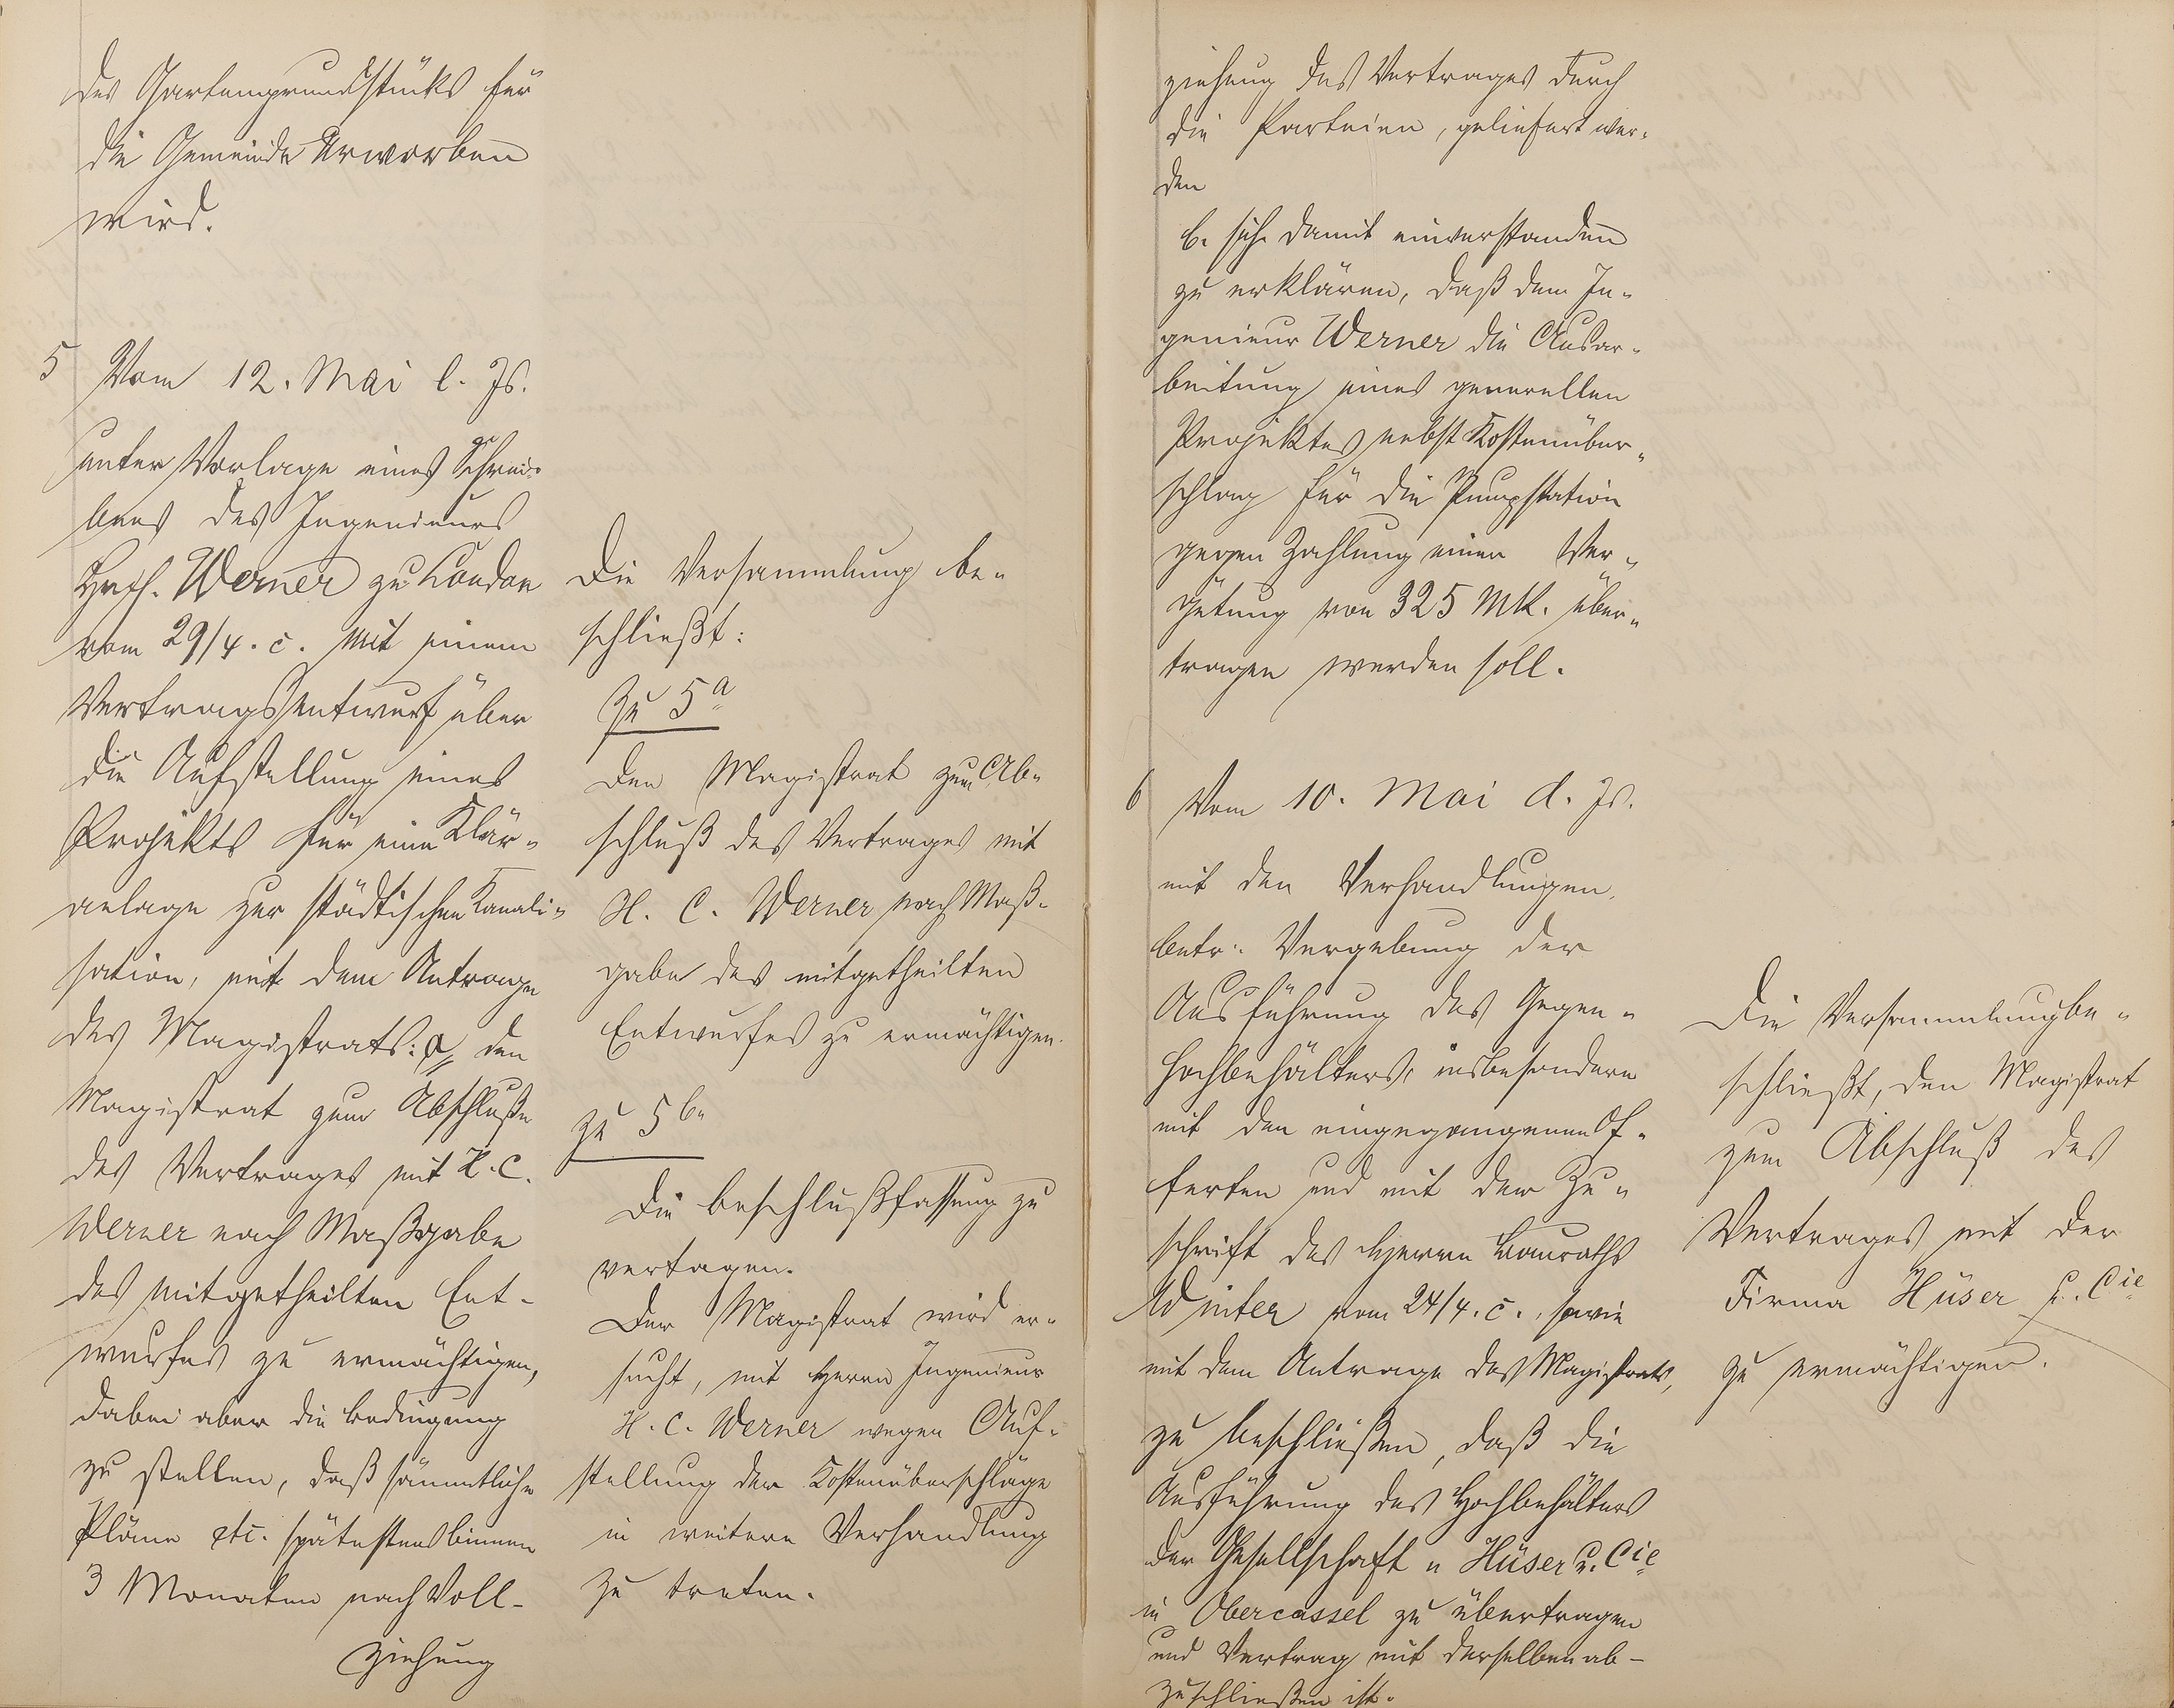 des Gartengrundstücks für
die Gemeinde Erworben
wird.
5 Vom 12. Mai l. Js.
unter Vorlage eines Schrei-
bens des Ingenieurs
Hrch. Werner zu London
vom 29/4. c. mit einem
Vertragsentwurf über
die Aufstellung eines
Projekts für eine Klär-
anlage zur städtischen Kanali-
sation, mit dem Antrage
des Magistrats: a, den
Magistrat zum Abschluße
des Vertrages mit H. C.
Werner nach Maßgabe
des mitgetheilten Ent-
wurfes zu ermächtigen,
dabei aber die Bedingung
zu stellen, daß sämmtliche
Pläne etc. spätestens binnen
3 Monaten nach Voll-
ziehung
Die Versammlung be-
schließt:
Zu 5a
Den Magistrat zum Ab-
schluß des Vertrages mit
H. C. Werner nach Maß-
gabe des mitgetheilten
Entwurfes zu ermächtigen.
zu 5b
Die Beschlußfassung zu
vertagen.
Der Magistrat wird er-
sucht, mit Herrn Ingenieur
H. C. Werner wegen Auf-
stellung der Kostenüberschläge
in weitere Verhandlung
zu treten.
ziehung des Vertrages durch
die Parteien, geliefert wer-
den
b. sich damit einverstanden
zu erklären, daß dem In-
genieur Werner die Ausar-
beitung eines generellen
Projektes nebst Kostenüber-
schlag für die Pumpstation
gegen Zahlung einer Ver-
gütung von 325 Mk. über-
tragen werden soll.
6 Vom 10. Mai d. Js.
mit den Verhandlungen,
betr: Vergebung der
Ausführung des Gegen-
hochbehälters, insbesondere
mit den eingegangenen Of-
ferten und mit der Zu-
schrift des Herrn Bauraths
Winter vom 24/4. c., sowie
mit dem Antrage des Magistrats,
zu beschließen, daß die
Ausführung des Hochbehälters
der Gesellschaft " Hüser u. Cie
in Obercassel zu übertragen
und Vertrag mit derselben ab-
zuschließen ist.
Die Versammlung be-
schließt, den Magistrat
zum Abschluß des
Vertrages mit der
Firma Hüser u. Cie
zu ermächtigen.